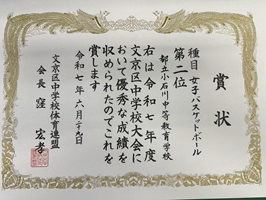 賞状
種目 女子バスケットボール
第二位
都立小石川中等教育学校
右は令和七年度
文京区中学校大会に
おいて優秀な成績を
収められたのでこれを
賞します
令和七年六月十五日
文京区中学校体育連盟
会長 窪 宏孝